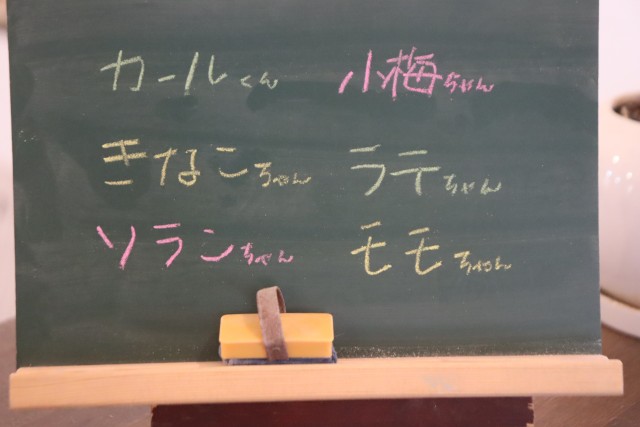 カールくん 小梅ちゃん
きなこちゃん ラテちゃん
ソランちゃん モモちゃん